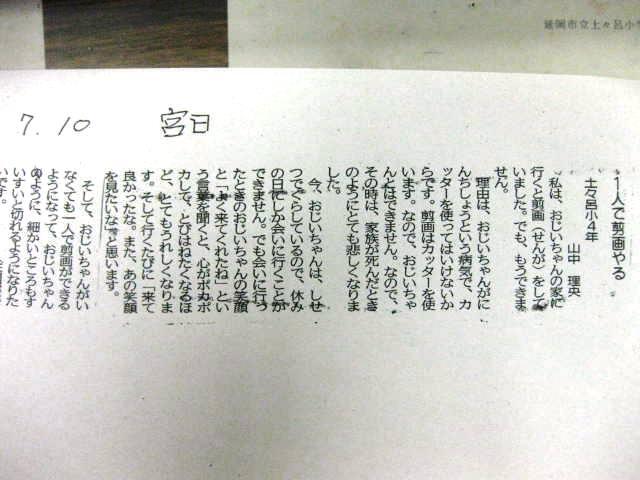 延岡市立土々呂小
7.10
宮日
1人で剪画やる
土々呂小4年
山中 理央
私は、おじいちゃんの家に
行くと剪画（せんが）をして
いました。でも、もうできま
せん。
理由は、おじいちゃんがに
んちしょうという病気で、カ
ッターを使ってはいけないか
らです。剪画はカッターを使
います。なので、おじいちゃ
んとはできません。なので、
その時は、家族が死んだとき
のようにとても悲しくなりま
した。
今、おじいちゃんは、しせ
つでくらしているので、休み
の日にしか会いに行くことが
できません。でも会いに行っ
たときのおじいちゃんの笑顔
と「よく来てくれたね」とい
う言葉を聞くと、心がポカポ
カして、とびはねたくなるほ
ど、とてもうれしくなりま
す。そして行くたびに「来て
良かったな。また、あの笑顔
を見たいな」と思います。
そして、おじいちゃんがい
なくても一人で剪画ができる
ようになって、おじいちゃん
のように、細かいところもす
いすいと切れるようになりた
いです。